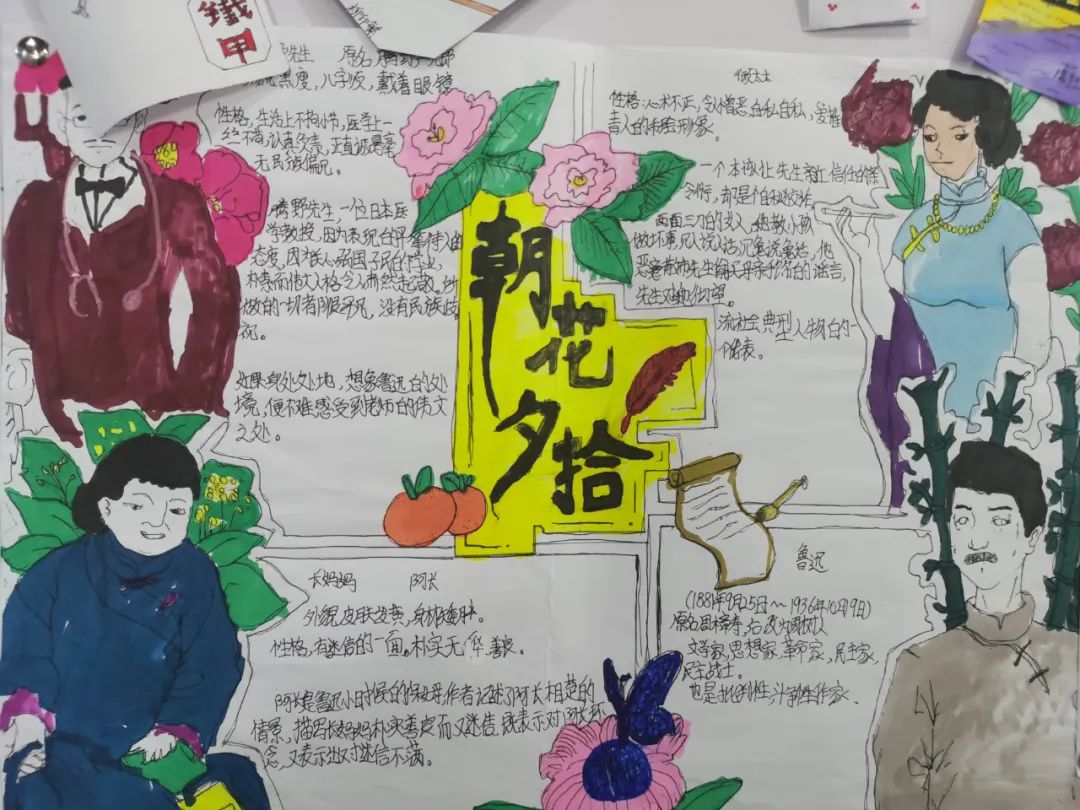 鐵甲
先生 原名,
黑瘦,八字须,戴着眼镜
性格,生活上不拘小节,医学上一
丝不苟,认真负责,正直诚恳
无民族偏见。
藤野先生,一位日本医
学教授,因为表现出平等待人的
态度,
朴素而伟大人格令人肃然起敬。所
做的一切都很平凡,没有民族歧
视。
如果身处处地,想象鲁迅的处
境,便不难感受到老师的伟大
之处。
朝花夕拾
衍太太
性格,心术不正,令人憎恶,自私自利,
一个本该让先生
令行,却是个自私狡诈
两面三刀的女人,她教小孩
做坏事,
恶意散播先生偷父母亲财宝的谣言,
先生对她很失望。
流社会典型人物的一
个代表。
长妈妈 阿长
外貌,皮肤发黄,身材矮胖。
性格,有迷信的一面。朴实无华,善良。
阿长是鲁迅小时候的保姆,作者记述了阿长相处的
情景,描写长妈妈朴实善良而又迷信,既表示对阿长怀
念,又表示出对迷信不满。
鲁迅
(1881年9月25日~1936年10月19日)
原名周樟寿,后改为周树人
文学家,思想家,革命家,民主家,
民主战士。
也是批判性,斗争性作家.